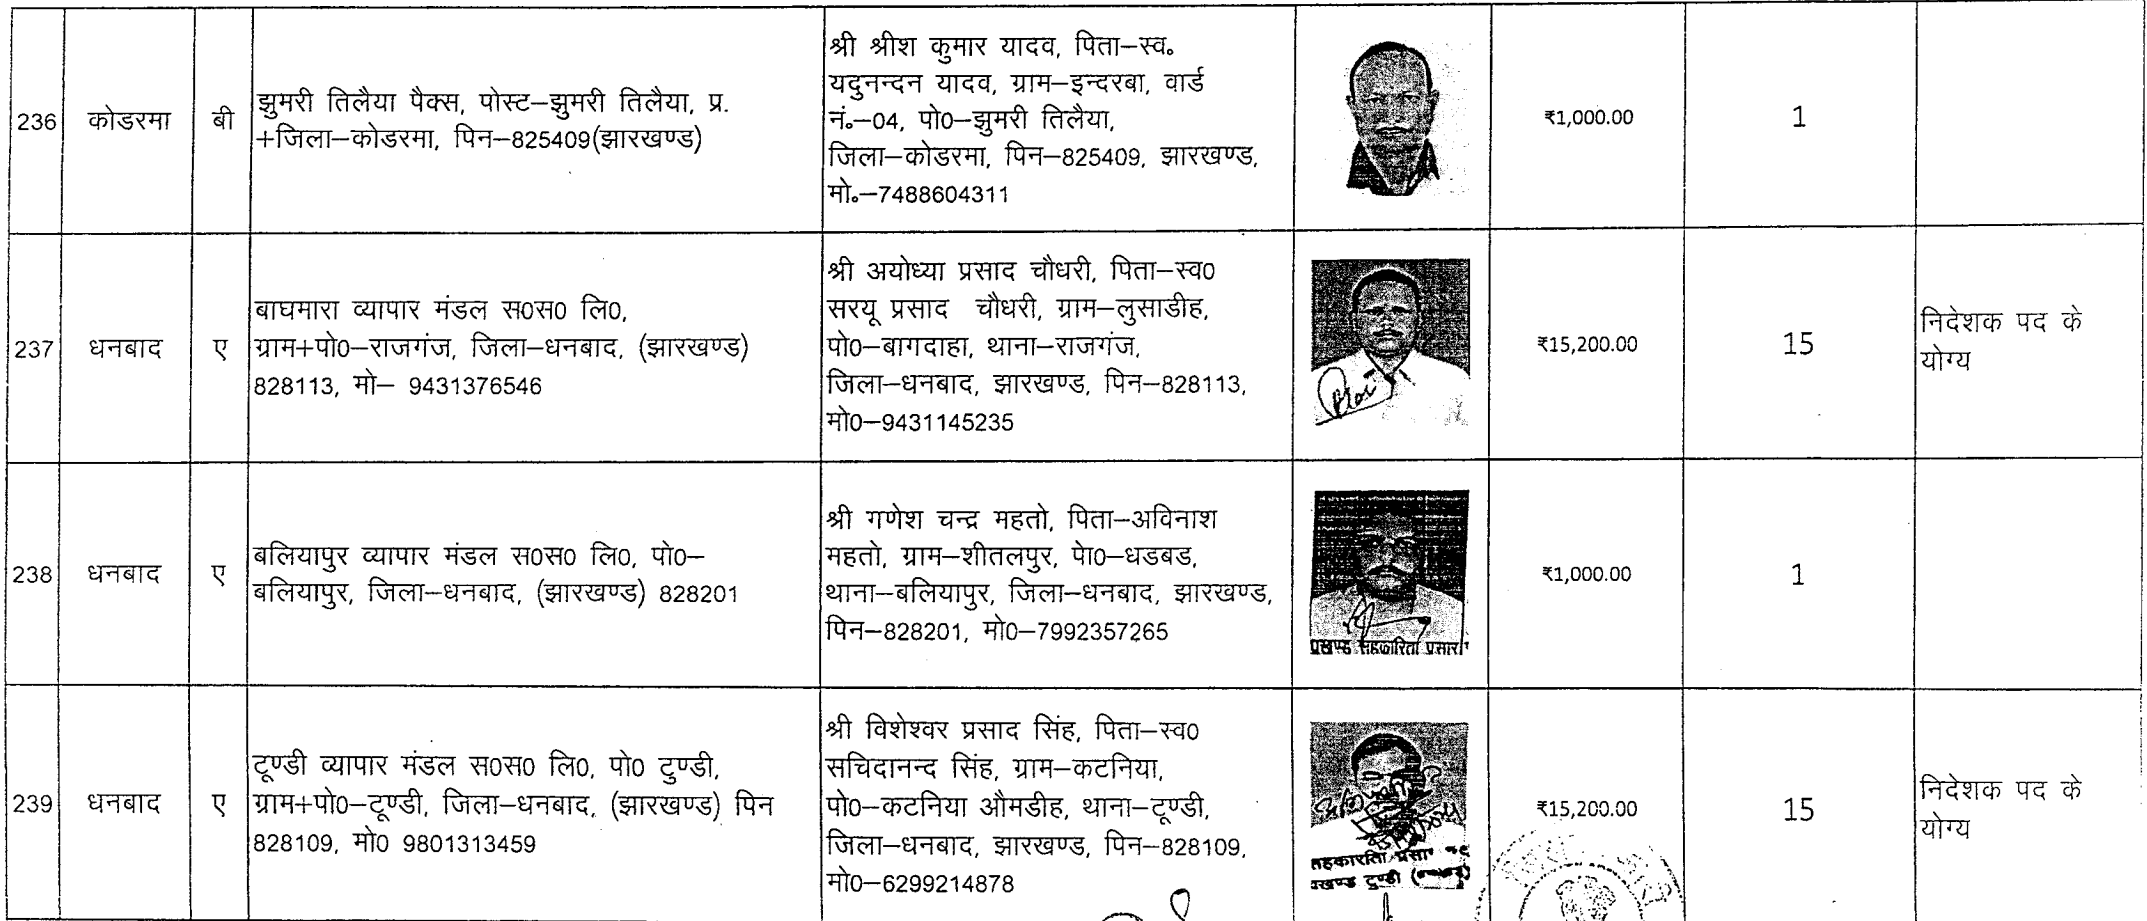 236
कोडरमा
बी
झुमरी तिलैया पैक्स, पोस्ट–झुमरी तिलैया, प्र.
+जिला–कोडरमा, पिन–825409(झारखण्ड)
श्री श्रीश कुमार यादव, पिता–स्व॰
यदुनन्दन यादव, ग्राम–इन्दरबा, वार्ड
नं॰–04, पो0–झुमरी तिलैया,
जिला–कोडरमा, पिन–825409, झारखण्ड,
मो॰–7488604311
₹1,000.00
1
237
धनबाद
ए
बाघमारा व्यापार मंडल स0स0 लि0,
ग्राम+पो0–राजगंज, जिला–धनबाद, (झारखण्ड)
828113, मो– 9431376546
श्री अयोध्या प्रसाद चौधरी, पिता–स्व0
सरयू प्रसाद चौधरी, ग्राम–लुसाडीह,
पो0–बागदाहा, थाना–राजगंज,
जिला–धनबाद, झारखण्ड, पिन–828113,
मो0–9431145235
₹15,200.00
15
निदेशक पद के
योग्य
238
धनबाद
ए
बलियापुर व्यापार मंडल स0स0 लि0, पो0–
बलियापुर, जिला–धनबाद, (झारखण्ड) 828201
श्री गणेश चन्द्र महतो, पिता–अविनाश
महतो, ग्राम–शीतलपुर, पेा0–धडबड,
थाना–बलियापुर, जिला–धनबाद, झारखण्ड,
पिन–828201, मो0–7992357265
प्रखण्ड सहकारिता प्रसार
₹1,000.00
1
239
धनबाद
ए
टूण्डी व्यापार मंडल स0स0 लि0, पो0 टुण्डी,
ग्राम+पो0–टूण्डी, जिला–धनबाद, (झारखण्ड) पिन
828109, मो0 9801313459
श्री विशेश्वर प्रसाद सिंह, पिता–स्व0
सचिदानन्द सिंह, ग्राम–कटनिया,
पो0–कटनिया औमडीह, थाना–टूण्डी,
जिला–धनबाद, झारखण्ड, पिन–828109,
मो0–6299214878
₹15,200.00
15
निदेशक पद के
योग्य